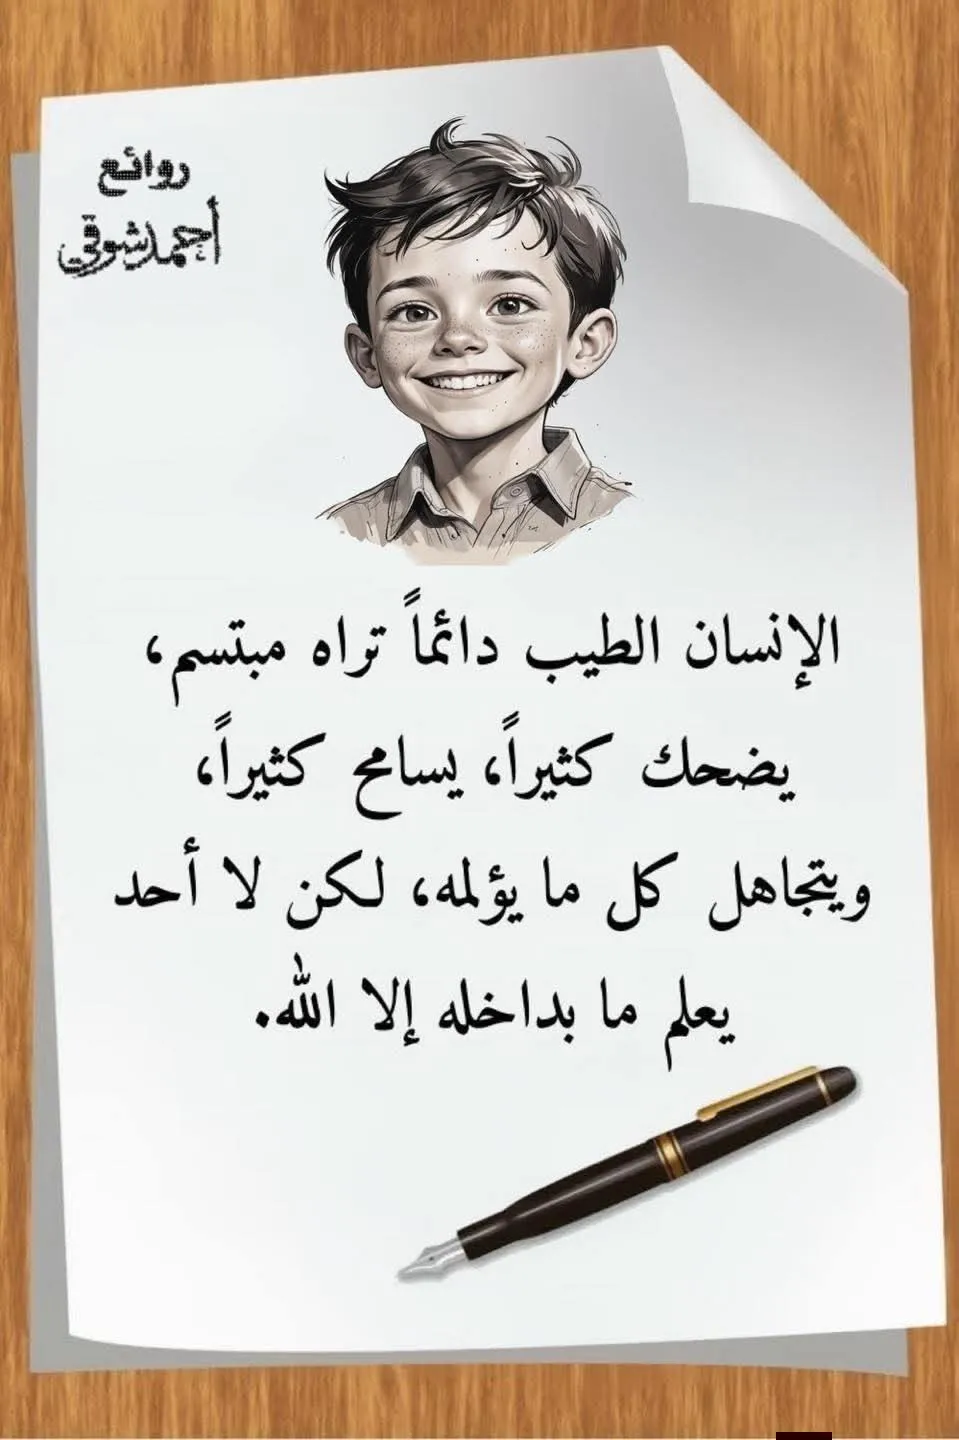 روائع
أحمد شوقي
الإنسان الطيب دائماً تراه مبتسم،
يضحك كثيراً، يسامح كثيراً،
ويتجاهل كل ما يؤلمه، لكن لا أحد
يعلم ما بداخله إلا الله.